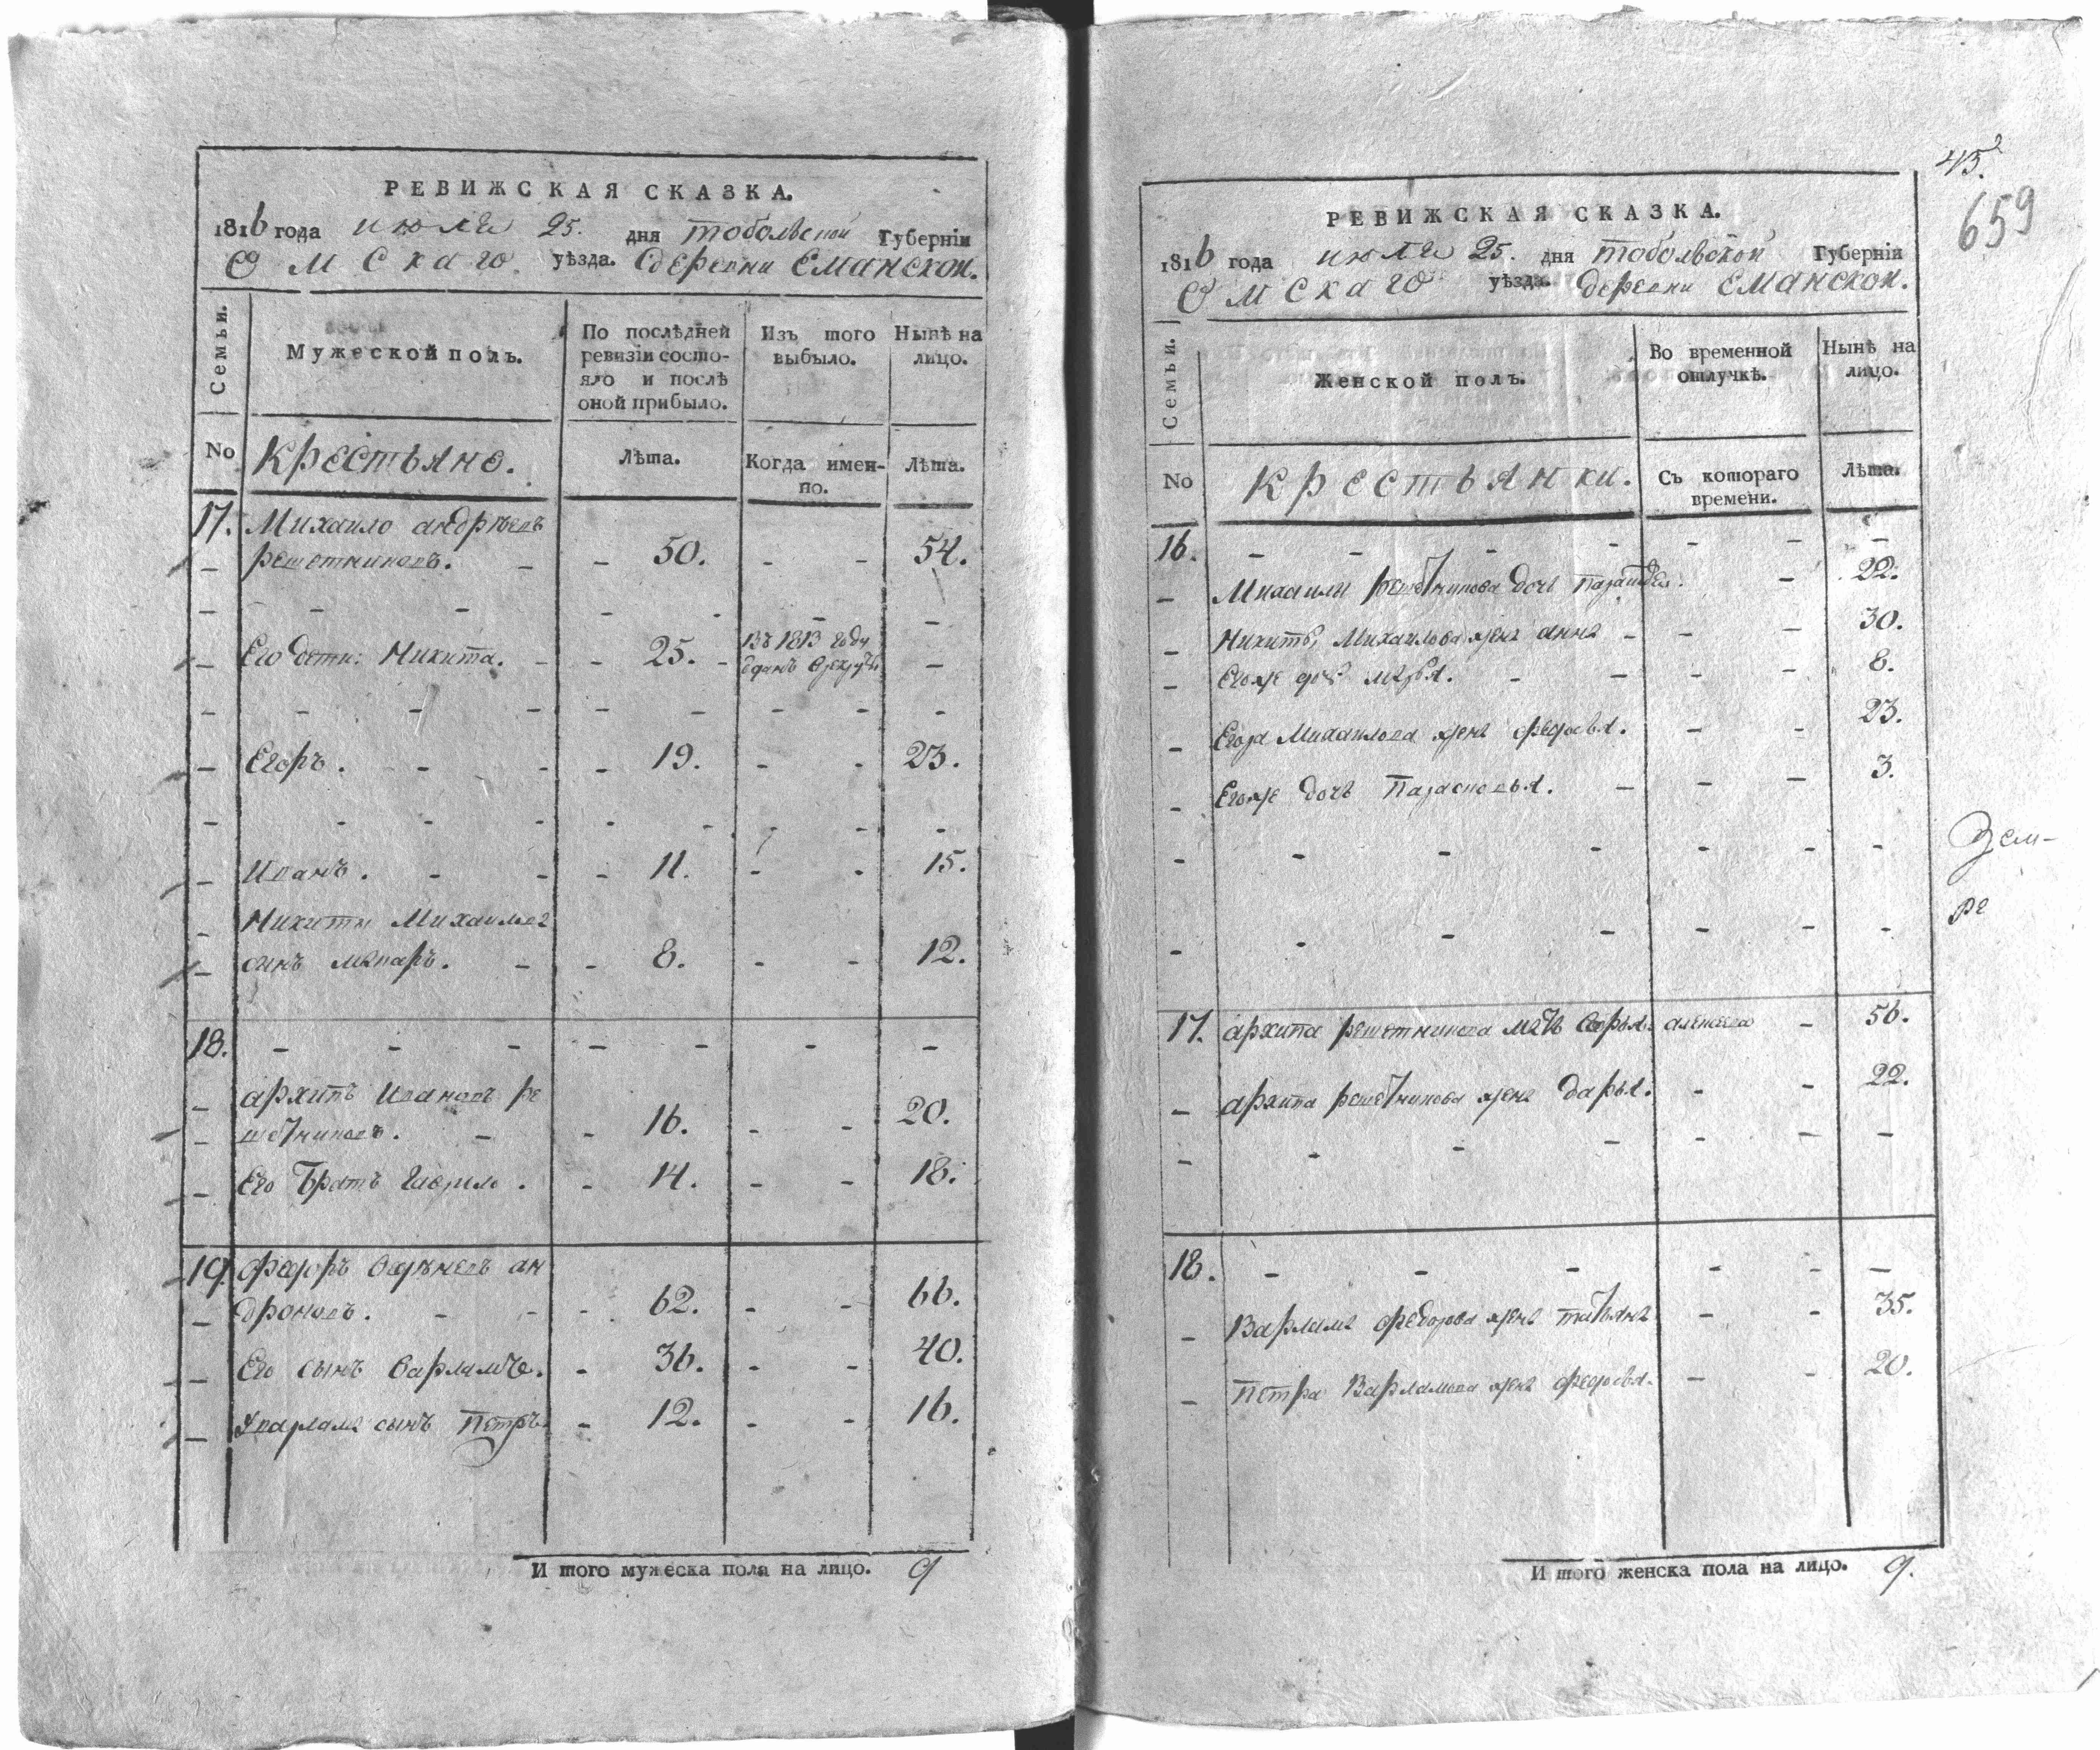 РЕВИЖСКАЯ СКАЗКА.
1816 года июля 25. дня тобольской Губерніи
Омскаго уѣзда. деревни Еманской.
Семьи.
Мужеской полъ.
По послѣдней
ревизіи состо-
яло и послѣ
оной прибыло.
Изъ того
выбыло.
Нынѣ на
лицо.
No
Крестьяне.
Лѣта.
Когда имен-
но.
Лѣта.
17. Михаило андрѣевъ
решетниковъ. - - 50. - - 54.
Его дети: Никита. - - 25. - въ 1813 году
отданъ рекруты -
Егоръ. - - - 19. - - 23.
Иванъ. - - - 11. - - 15.
Никиты Михаилова
сынъ макаръ. - - 8. - - 12.
18. - - - - - - -
архипъ Ивановъ ре
шетниковъ. - - 16. - - 20.
Его братъ гаврило. - 14. - - 18.
19. федоръ ан
дроновъ. - - - 62. - - 66.
Его сынъ варламъ. - 36. - - 40.
варлама сынъ Петръ - 12. - - 16.
И того мужеска пола на лицо. 9
45.
659
РЕВИЖСКАЯ СКАЗКА.
1816 года июля 25. дня тобольской Губерніи
Омскаго уѣзда. деревни Еманской.
Семьи.
Женской полъ.
Во временной
отлучкѣ.
Нынѣ на
лицо.
No
Крестьянки.
Съ котораго
времени.
Лѣта.
16. - - - - - - -
Михаилы решетникова дочь - 22.
Никиты Михаилова жена анна - - - 30.
Егоже дочь марья. - - - - 8.
Егора Михаилова жена федосья. - - 23.
Егоже дочь Парасковья. - - - 3.
Зем-
ре
17. архипа решетникова мать дарья алексеева - 56.
архипа решетникова жена дарья. - - 22.
18. - - - - - -
Варлама федорова жена татьяна - - 35.
Петра Варламова жена федосья. - - 20.
И того женска пола на лицо. 9.